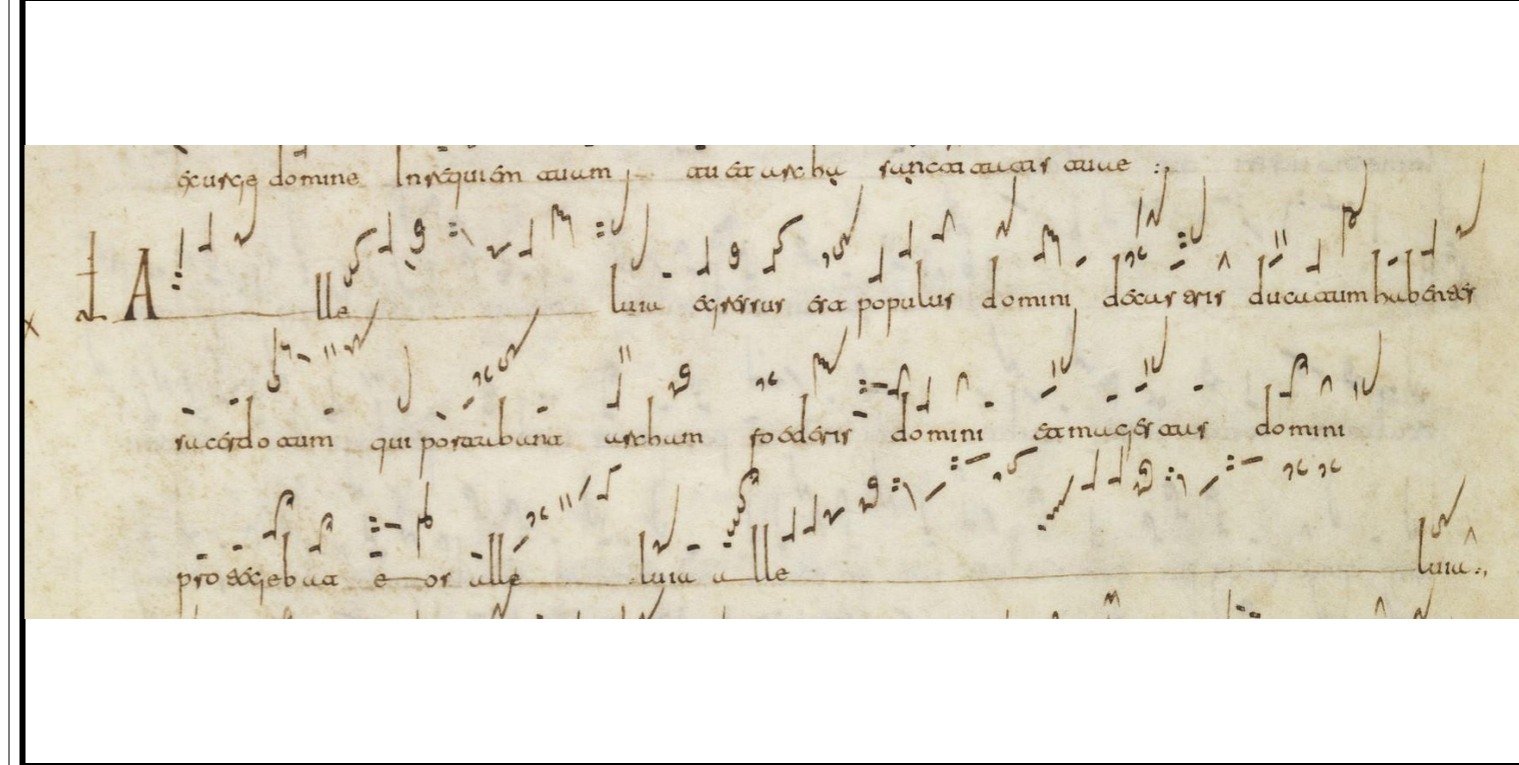 exurge domine In requiem tuam tu et archa sanctitatis tue
A lle luia egressus est populus domini de castris ducatum habentes
sacerdotum qui portabant archam foederis domini et magestas domini
protegebat e os alle luia a lle luia